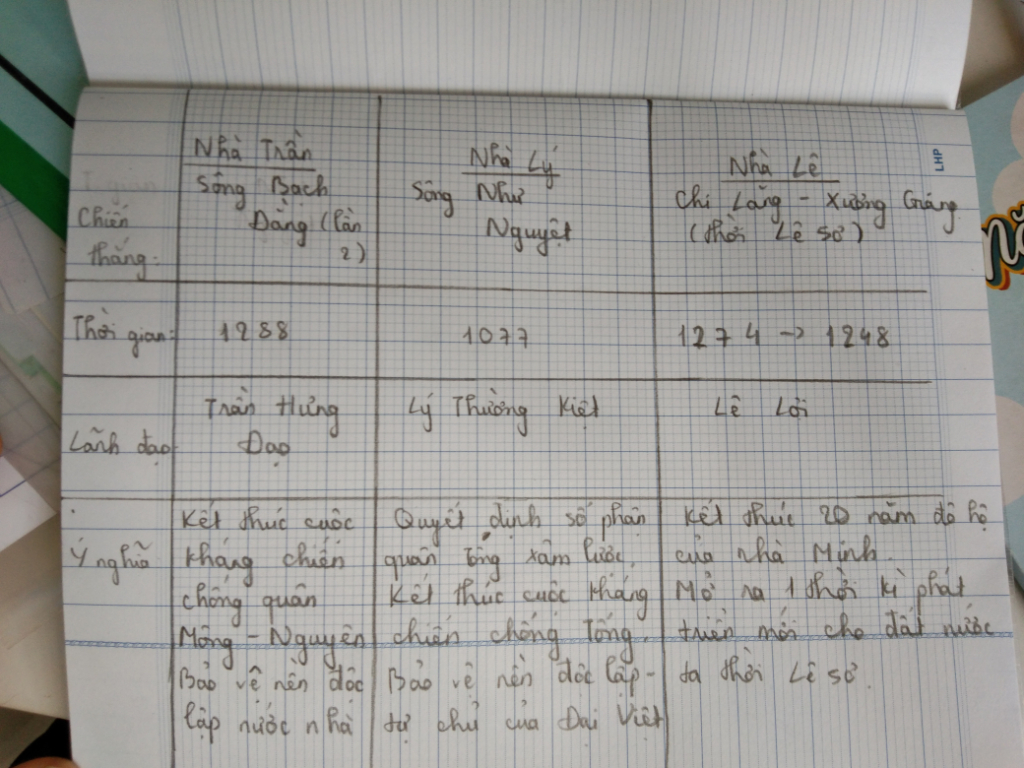 Nhà Trần
Nhà Lý
Nhà Lê
Chiến thắng:
Sông Bạch
Đằng (lần
2)
Sông Như
Nguyệt
Chi Lăng - Xương Giang
(thời Lê sơ)
Thời gian:
1288
1077
1274 -> 1248
Lãnh đạo
Trần Hưng
Đạo
Lý Thường Kiệt
Lê Lợi
Ý nghĩa
Kết thúc cuộc
kháng chiến
chống quân
Mông - Nguyên
Bảo vệ nền độc
lập nước nhà
Quyết định số phận
quân Tống xâm lược.
Kết thúc cuộc kháng
chiến chống Tống.
Bảo vệ nền độc lập -
tự chủ của Đại Việt
Kết thúc 20 năm đô hộ
của nhà Minh.
Mở ra 1 thời kì phát
triển mới cho đất nước
ta thời Lê sơ.
LHP